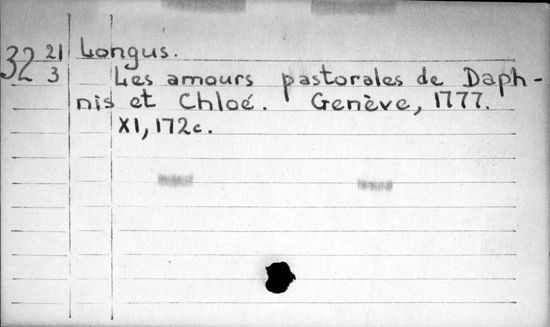 32 21 Longus.
3 Les amours pastorales de Daph-
nis et Chloé. Genève, 1777.
XI, 172c.